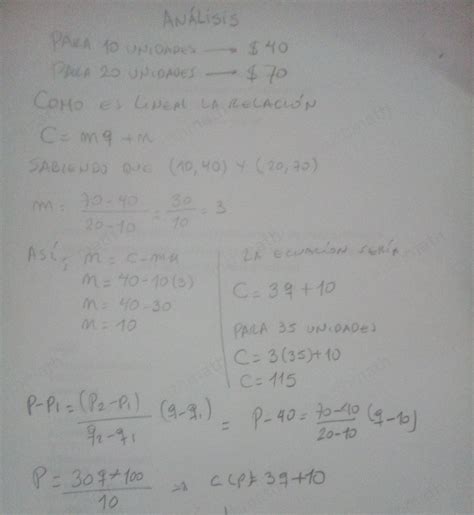 ANÁLISIS
PARA 10 UNIDADES → $40
PARA 20 UNIDADES → $70
COMO ES LINEAL LA RELACIÓN
C = mq + n
SABIENDO QUE (10,40) Y (20,70)
m = 70-40/20-10 = 30/10 = 3
ASÍ;
n = 40-10(3)
n = 40-30
n = 10
LA ECUACIÓN SERÍA
C = 3q + 10
PARA 35 UNIDADES
C = 3(35)+10
C = 115
P-P1 = (P2-P1)/q2-q1 (q-q1) = P-40 = 70-40/20-10 (q-10)
P = 30q+100/10 ⇒ C(P)= 3q+10